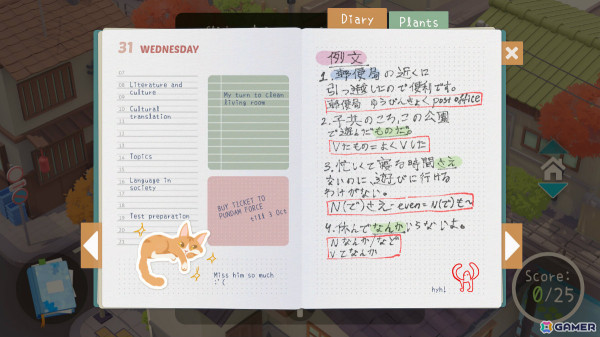 Diary
Plants
31 WEDNESDAY
07
08
Literature and culture
10
Cultural translation
12
13
Topics
15
16
Language in society
18
Test preparation
20
21
My turn to clean living room
BUY TICKET TO PUNDAM FORCE
till 3 Oct
Miss him so much :'(
例文
1. 郵便局の近くに
引っ越したので便利です。
郵便局 ゆうびんきょく post office
2. 子供のころ、この公園
で遊んだものだ。
Vたもの=よくVした
3. 忙しくて寝る時間さえ
ないのに、遊びに行ける
わけがない。
N(で)さえ - even = N(で)も~
4. 休んでなんかいらないよ。
Nなんか/など
Vてなんか
hyhl
Score:
0/25
GAMER